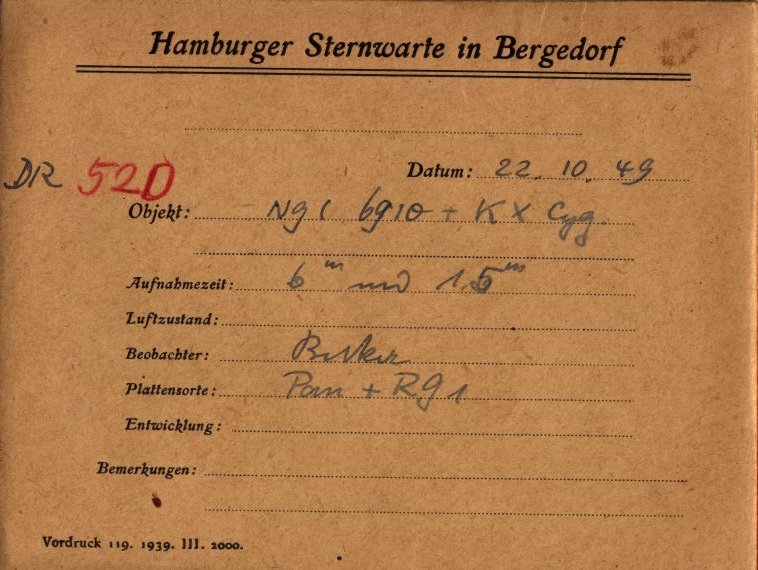 Hamburger Sternwarte in Bergedorf
DR 520
Datum: 22. 10. 49
Objekt: NGC 6910 + KX Cyg
Aufnahmezeit: 6 m und 1.5 m
Luftzustand:
Beobachter:
Plattensorte: Pan + RG 1
Entwicklung:
Bemerkungen:
Vordruck 119. 1939. III. 2000.